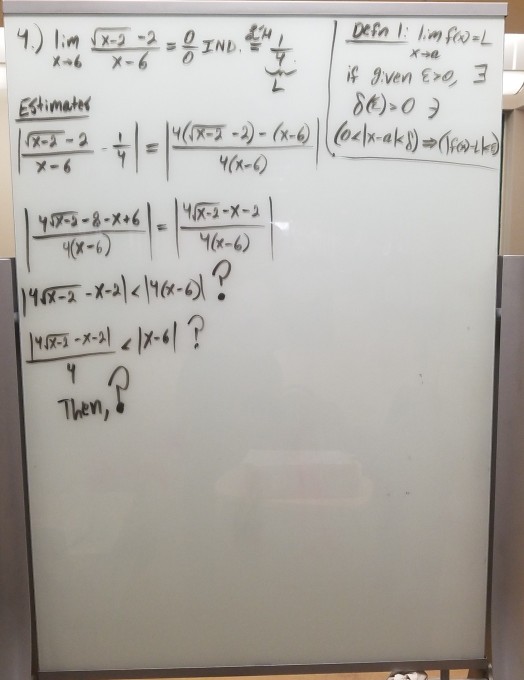 4.) lim x→6 (√(x-2) - 2)/(x-6) = 0/0 IND. L'H = 1/4
L
Defn 1: lim f(x)=L
x→a
if given ε>0, ∃
δ(ε)>0 ∋
(0<|x-a|<δ) ⇒ (|f(x)-L|<ε)
Estimates
|(√(x-2) - 2)/(x-6) - 1/4| = |(4(√(x-2) - 2) - (x-6))/(4(x-6))|
|(4√(x-2) - 8 - x + 6)/(4(x-6))| = |(4√(x-2) - x - 2)/(4(x-6))|
|4√(x-2) - x - 2| < |4(x-6)| ?
|4√(x-2) - x - 2|/4 < |x-6| ?
Then, ?